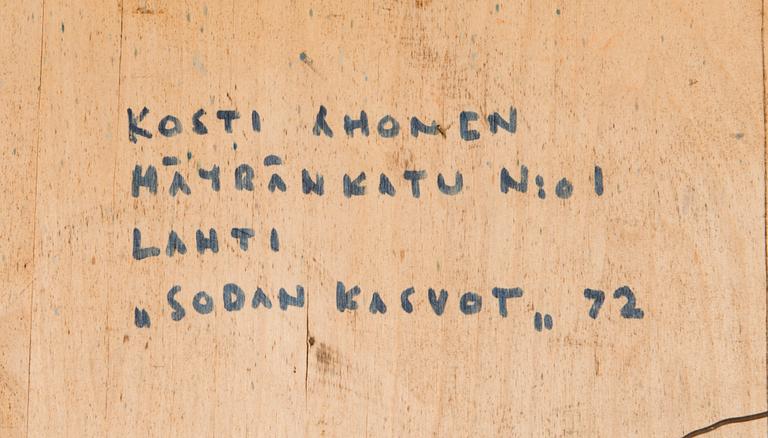 KOSTI AHONEN
MÄYRÄNKATU N:o 1
LAHTI
„SODAN KASVOT„ 72